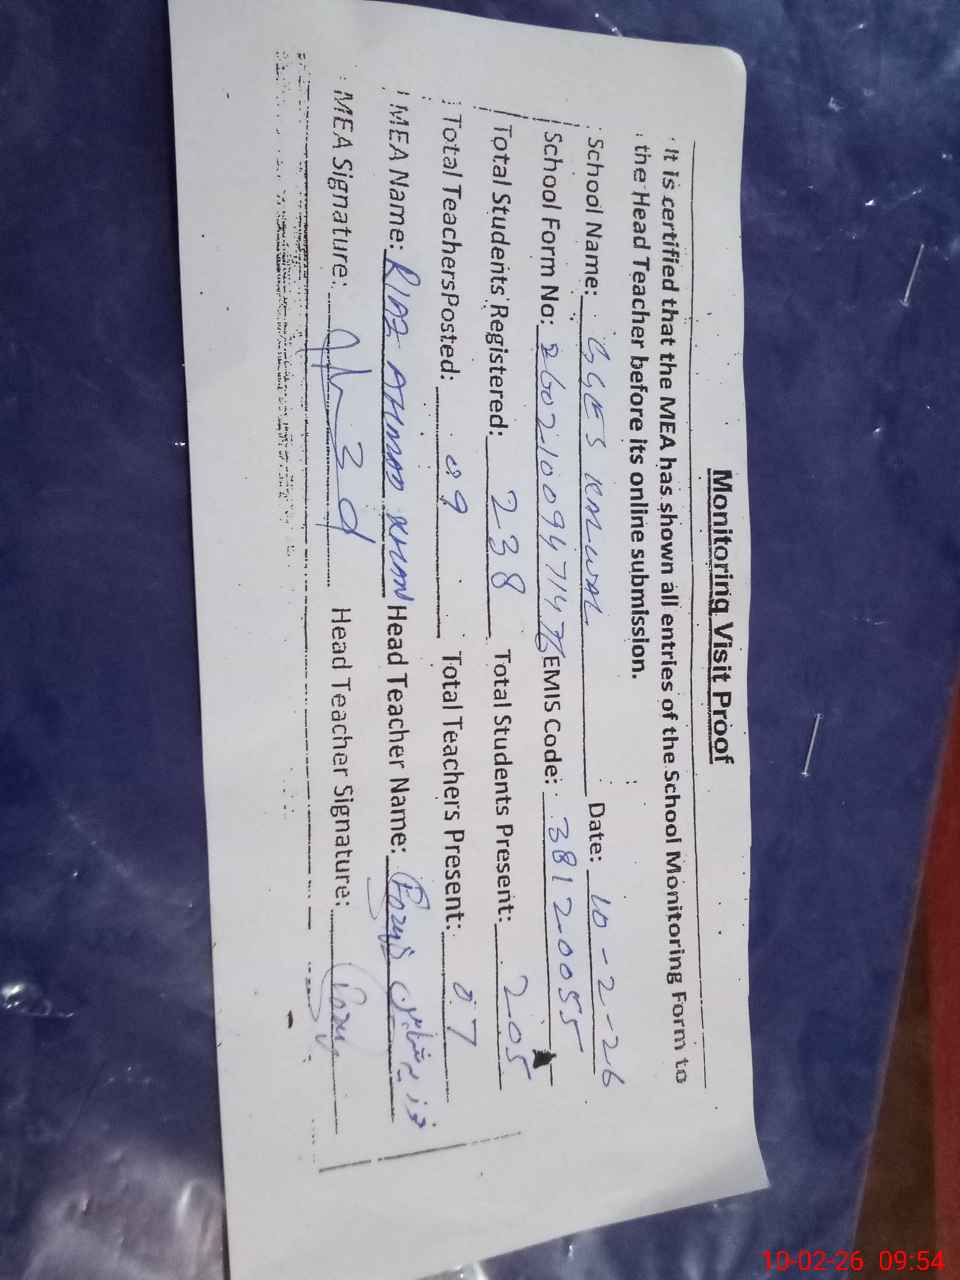 Monitoring Visit Proof
It is certified that the MEA has shown all entries of the School Monitoring Form to
the Head Teacher before its online submission.
School Name: GGES KALWAL Date: 10-2-26
School Form No: 2602100947147 EMIS Code: 38120055
Total Students Registered: 238 Total Students Present: 205
Total Teachers Posted: 09 Total Teachers Present: 07
MEA Name: RIAZ AHMAD KHAN Head Teacher Name: فوزیہ شاہین
MEA Signature: Head Teacher Signature:
10-02-26 09:54